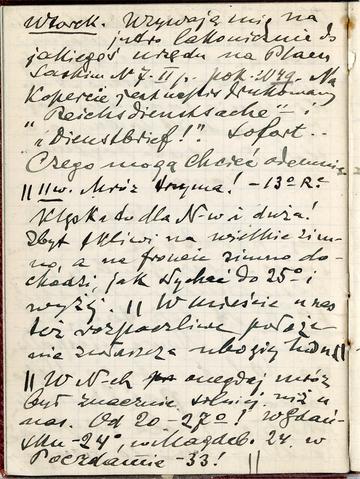 Wtorek. Wzywają mię na
jutro lakonicznie do
jakiegoś urzędu na Placu
Saskim N 7 II p. pok. 2049. Na
kopercie jest napis drukowany
"Reichsdienstsache" i
i Dienstbrief!" Sofort..
Czego mogą chcieć odemnie
|| II w. Mróz trzyma! -13° R.
Klęska to dla N-w i duża!
Zbyt tkliwi na wielkie zim-
no, a na froncie zimno do-
chodzi, jak słychać do 25° i
wyżej. || W mieście u nas
też rozpaczliwe położe
nie zwłaszcza ubogiej ludn ||
|| W N-ch onegdaj mróz
był znacznie silniej. niż u
nas. Od 20-27°! w Gdań-
sku -24°, w Magdeb. 24. w
Poczdamie -33! ||